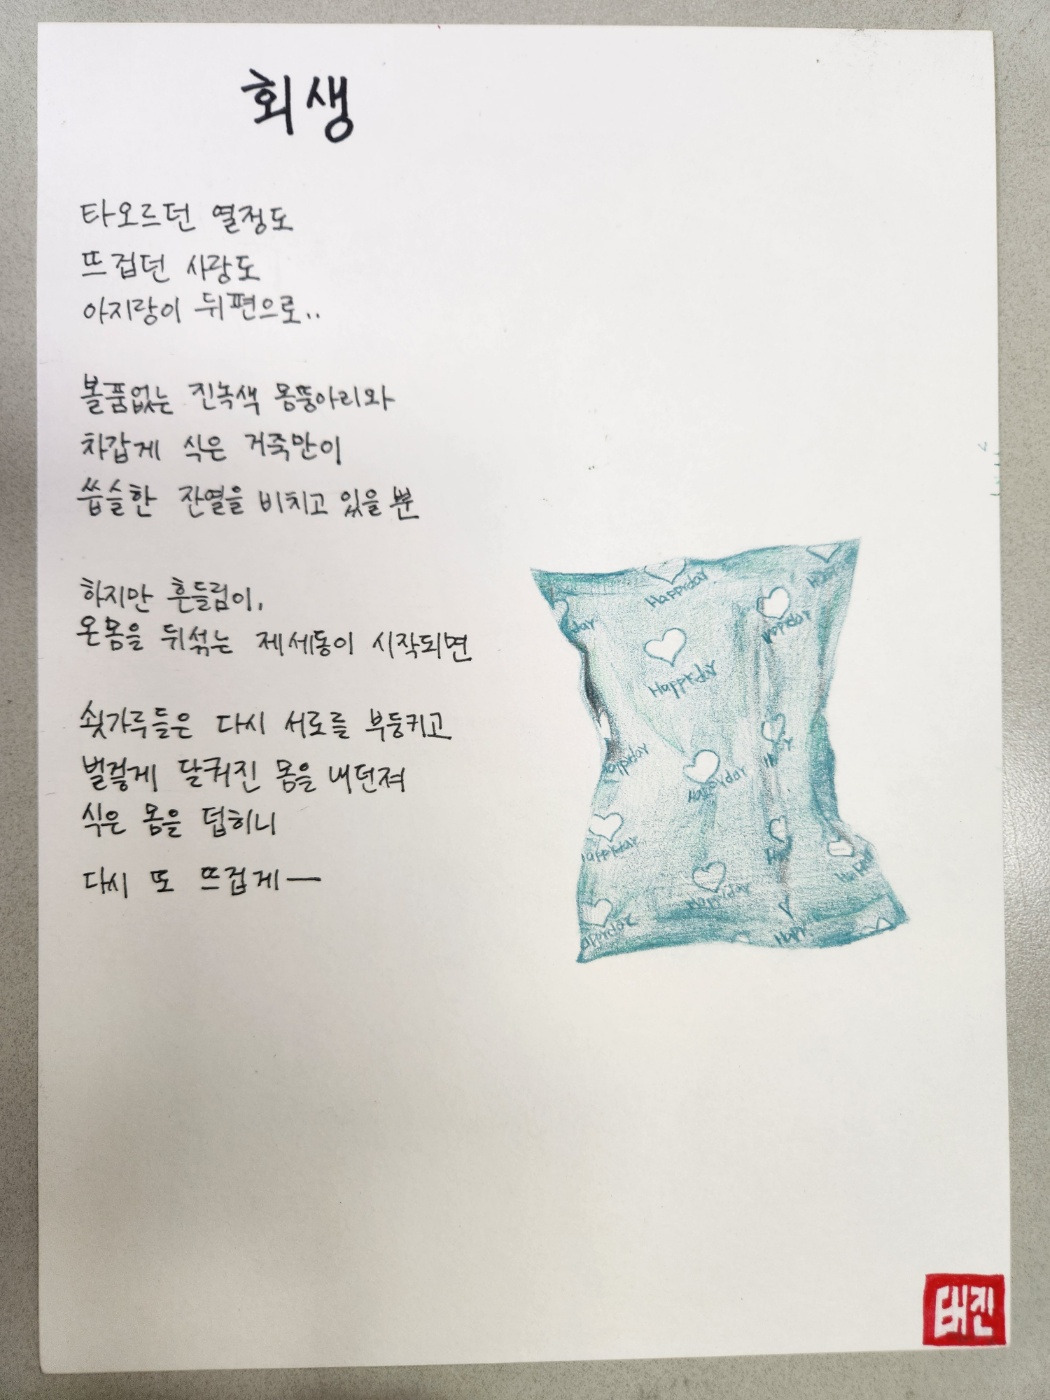 회생
타오르던 열정도
뜨겁던 사랑도
아지랑이 뒤편으로..
볼품없는 진녹색 몽뚱아리와
차갑게 식은 거죽만이
씁슬한 잔열을 비치고 있을 뿐
하지만 흔들림이,
온몸을 뒤섞는 제세동이 시작되면
쇳가루들은 다시 서로를 부둥키고
벌겋게 달궈진 몸을 내던져
식은 몸을 덥히니
다시 또 뜨겁게—
Happyday
Happyday
Happyday
Happyday
대진